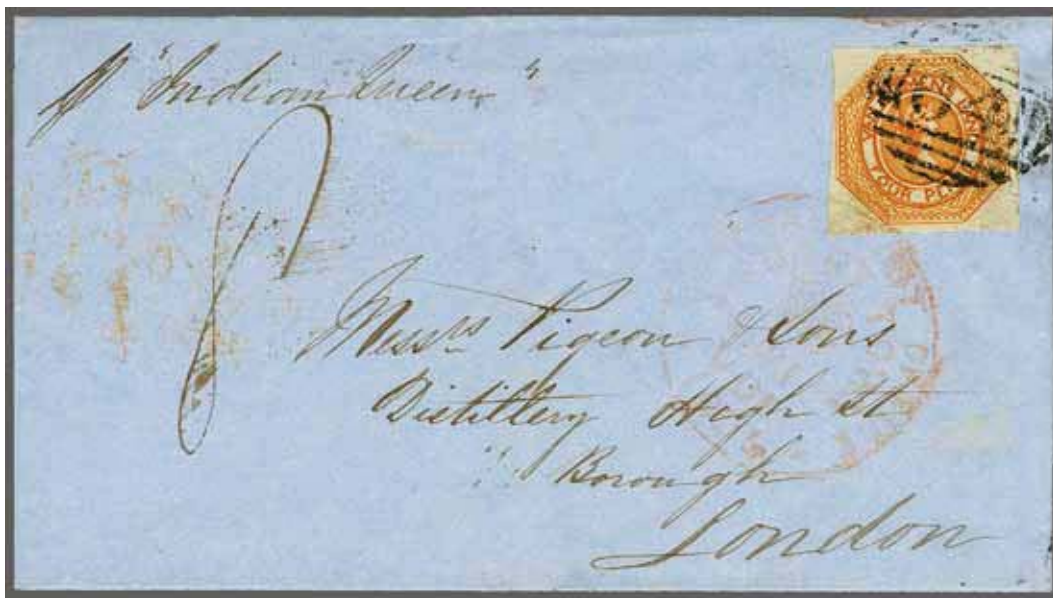 p "Indian Queen"
8
Messrs Pigeon & Sons
Distillery High St
Borough
London
FOUR PE